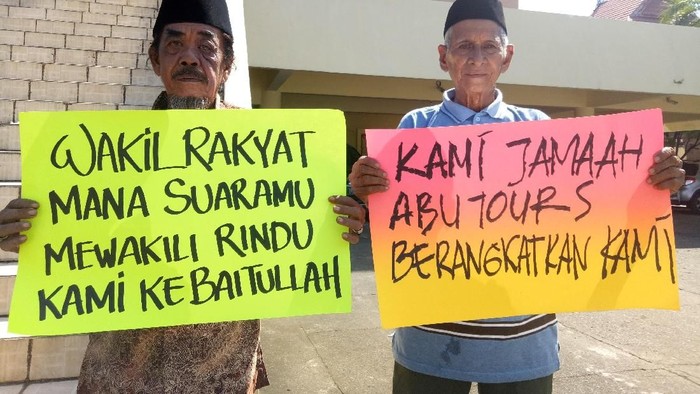 WAKIL RAKYAT
MANA SUARAMU
MEWAKILI RINDU
KAMI KE BAITULLAH
KAMI JAMAAH
ABUTOURS
BERANGKATKAN KAMI